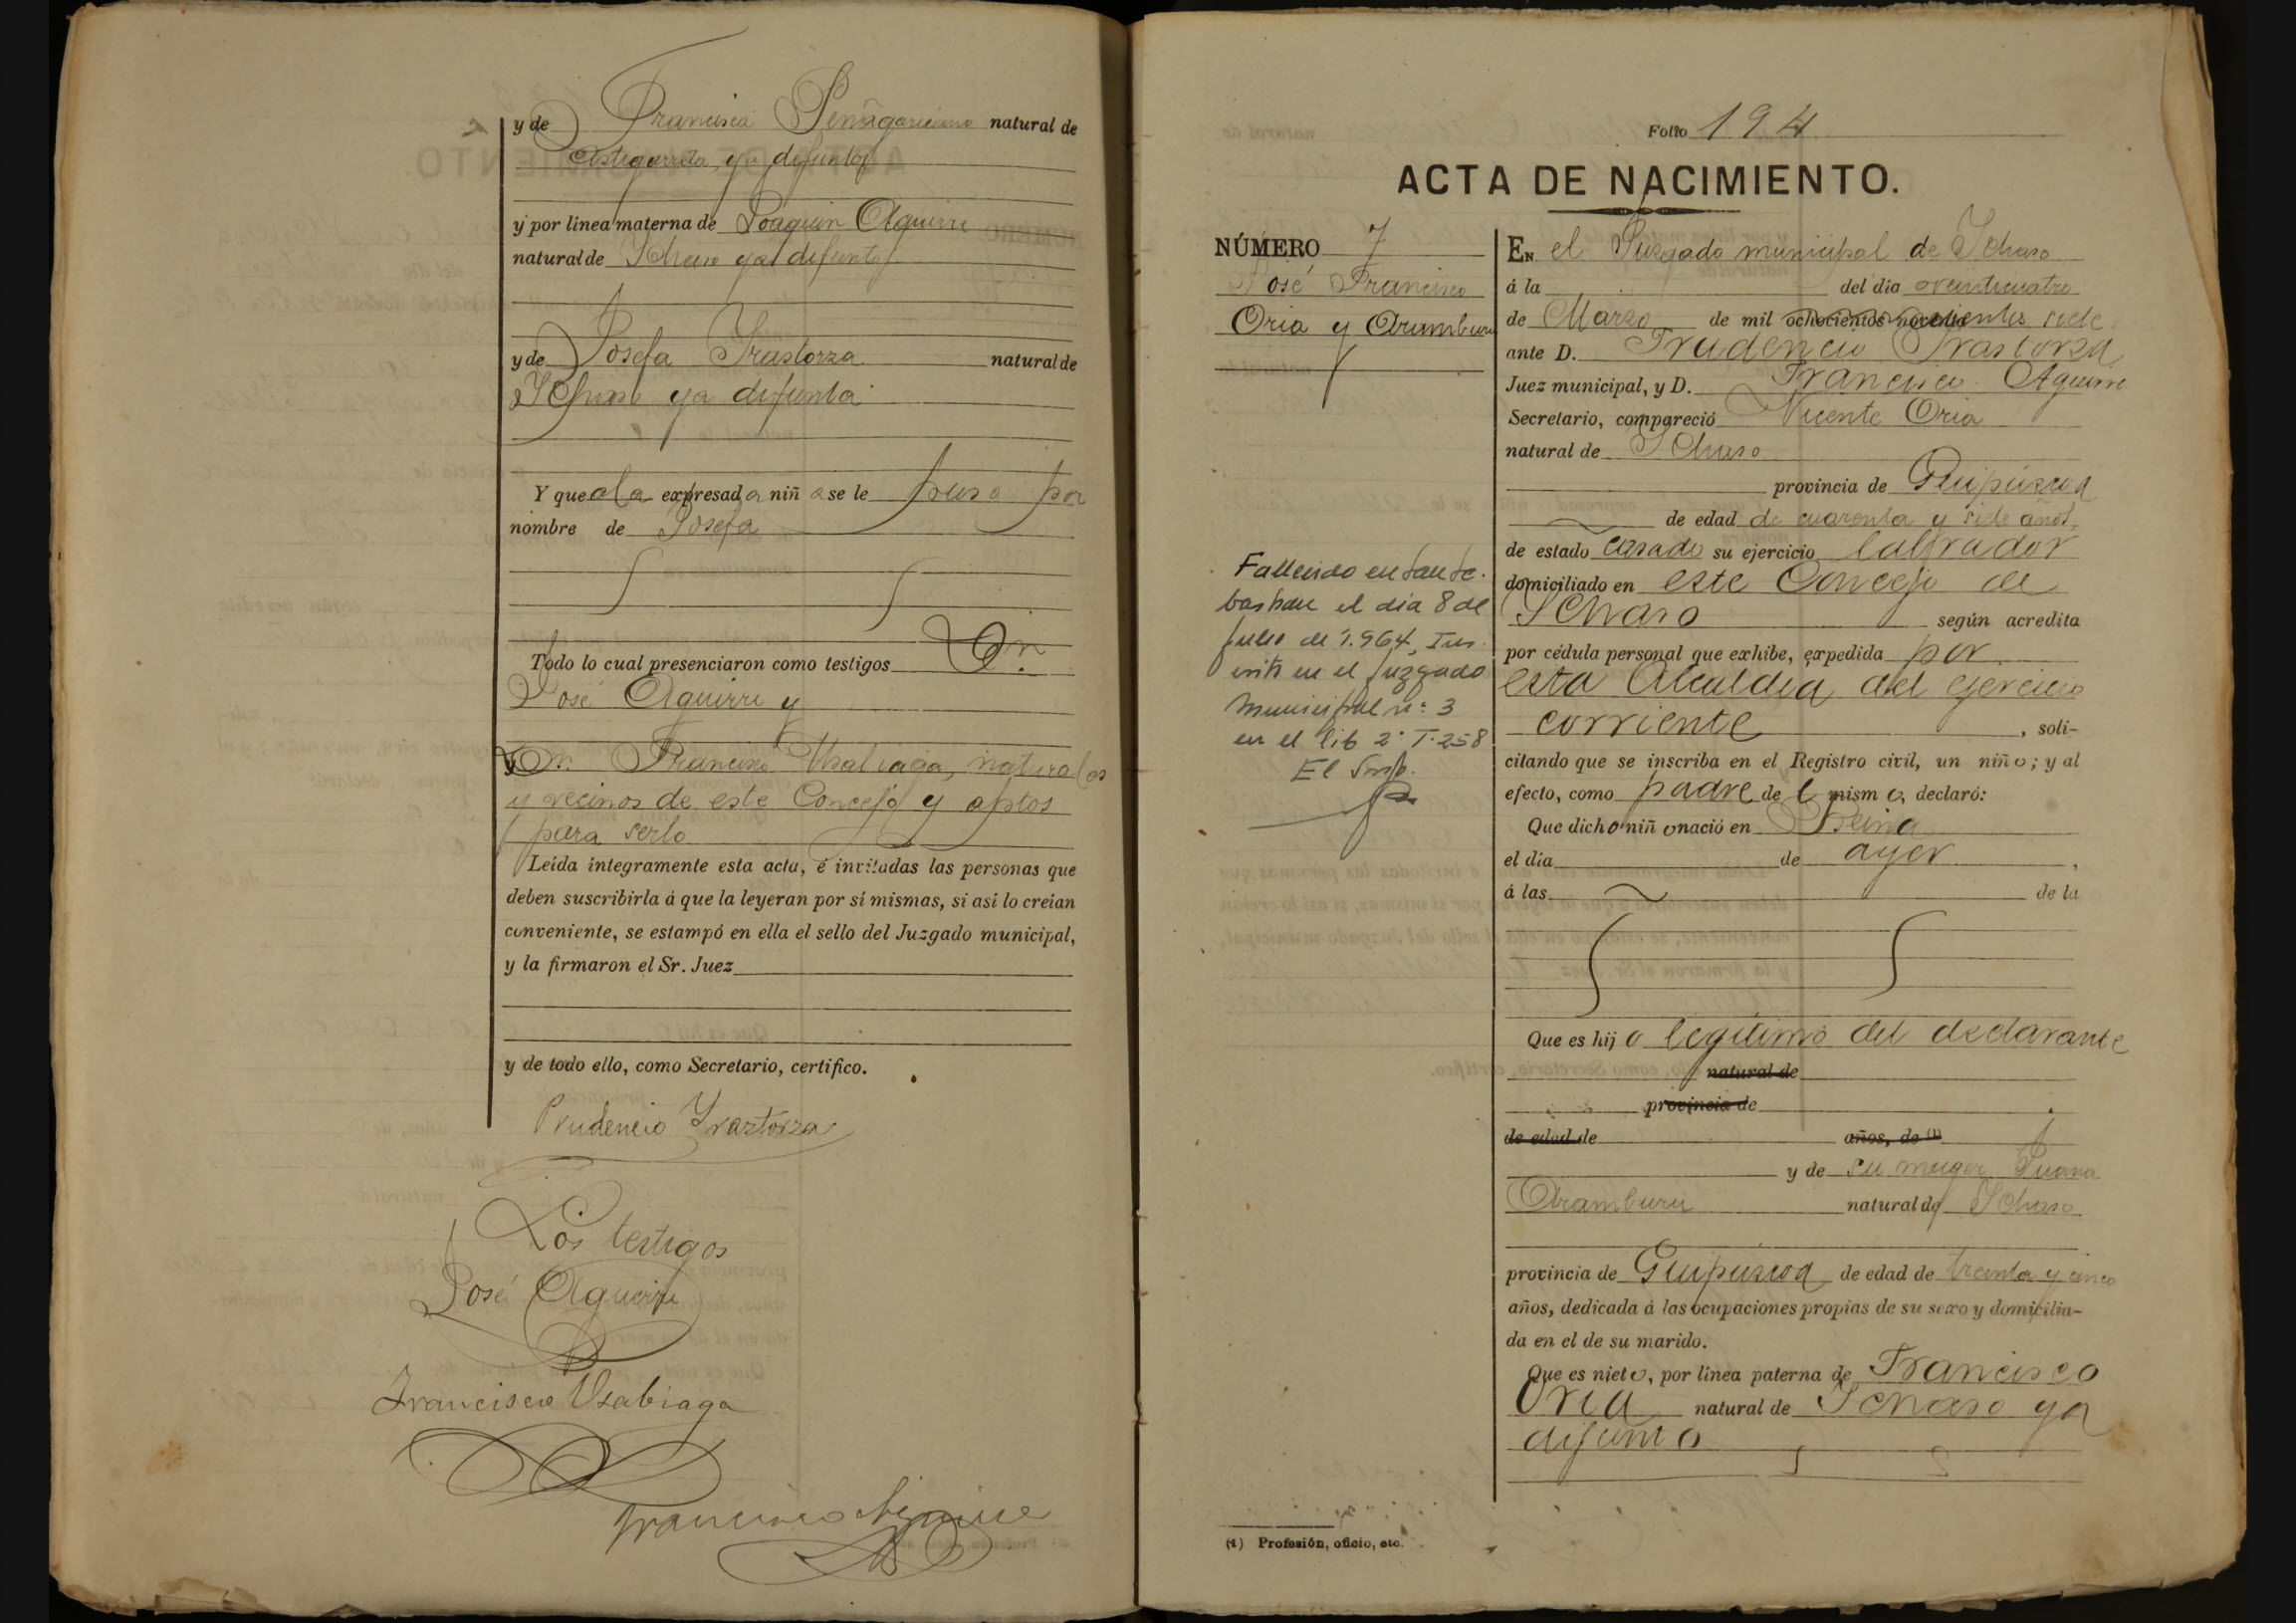 y de Francisca Peñagaricano natural de
Astigarreta, ya difuntos
y por línea materna de Joaquin Aguirre
natural de Ichaso ya difunto
y de Josefa Irastorza natural de
Ichaso ya difunta
Y que a la expresada niña se le puso por
nombre de Josefa
Todo lo cual presenciaron como testigos Dn.
José Aguirre y
Dn. Francisco Usabiaga, naturales
y vecinos de este Concejo y aptos
para serlo
Leída íntegramente esta acta, é invitadas las personas que
deben suscribirla á que la leyeran por sí mismas, si así lo creían
conveniente, se estampó en ella el sello del Juzgado municipal,
y la firmaron el Sr. Juez
y de todo ello, como Secretario, certifico.
Prudencio Yraztorza
Los testigos
José Aguirre
Francisco Usabiaga
Francisco Aguirre
Folio 194
ACTA DE NACIMIENTO.
NÚMERO 7
José Francisco
Oria y Aramburu
Fallecido en San Se-
bastian el dia 8 de
Julio de 1.964, Ins-
crito en el Juzgado
Municipal nº 3
en el lib 2º T. 258
El
En el Juzgado municipal de Ichaso
á la del día veinticuatro
de Marzo de mil ochocientos noventa siete
ante D. Prudencio Irastorza
Juez municipal, y D. Francisco Aguirre
Secretario, compareció Vicente Oria
natural de Ichaso
provincia de Guipúzcoa
de edad de cuarenta y siete años,
de estado casado su ejercicio labrador
domiciliado en este Concejo de
Ichaso según acredita
por cédula personal que exhibe, expedida por
esta Alcaldia del ejercicio
corriente, soli-
citando que se inscriba en el Registro civil, un niño; y al
efecto, como padre del mismo, declaró:
Que dicho niño nació en
el día de ayer,
á las de la
Que es hijo legitimo del declarante
natural de
provincia de
de edad de años, de (1)
y de su muger Juana
Aramburu natural de Ichaso
provincia de Guipúzcoa de edad de treinta y cinco
años, dedicada á las ocupaciones propias de su sexo y domicilia-
da en el de su marido.
Que es nieto, por línea paterna de Francisco
Oria natural de Ichaso ya
difunto
(1) Profesión, oficio, etc.